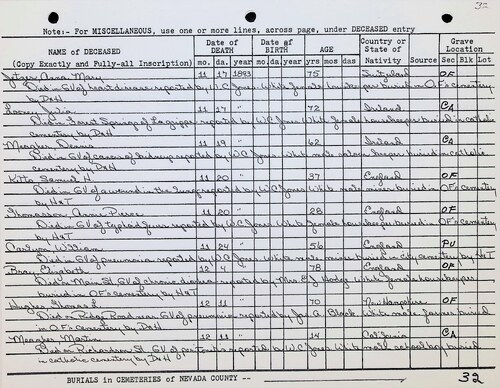 32
Note:- For MISCELLANEOUS, use one or more lines, across page, under DECEASED entry
NAME of DECEASED (Copy Exactly and Fully-all Inscription) Date of DEATH mo. da. year Date of BIRTH mo. da. year AGE yrs mos das Country or State of Nativity Source Grave Location Sec Blk Lot
Anna Mary 11 17 1893 75 Switzerland OF
Died in GV of heart disease reported by W.C. Jones White female housekeeper buried in OF's cemetery
by D&H
Looney Julia 11 17 " 72 Ireland CA
Died in Forest Springs of La grippe reported by W.C. Jones White female housekeeper buried in catholic
cemetery by D&H
Meagher Dennis 11 19 " 62 Ireland CA
Died in GV of cancer of kidney reported by W.C. Jones White male saloon keeper buried in catholic
cemetery by D&H
Kitto Samuel H 11 20 " 37 England OF
Died in GV of a wound in the lung reported by W.C. Jones White male miner buried in OF's cemetery
by H&T
Thomasson Annie Pierce 11 20 " 28 England OF
Died in GV of typhoid fever reported by W.C. Jones White female housekeeper buried in OF's cemetery
by H&T
William 11 24 " 56 England PU
Died in GV of pneumonia reported by W.C. Jones White male miner buried in city cemetery by H&T
Bray Elizabeth 12 4 " 78 England OF
Died in Main St. GV of chronic reported by Mrs. E.J. White female housekeeper
buried in OF's cemetery by H&T
Hughes L 12 11 " 70 New Hampshire OF
Died in Ridge Road near GV of pneumonia reported by Jos. A. Black White male farmer buried
in OF's cemetery by D&H
Meagher Martin 12 11 " 14 California CA
Died in Richardson St. GV of peritonitis reported by W.C. Jones White male school boy buried
in catholic cemetery by D&H
BURIALS in CEMETERIES of NEVADA COUNTY -- 32